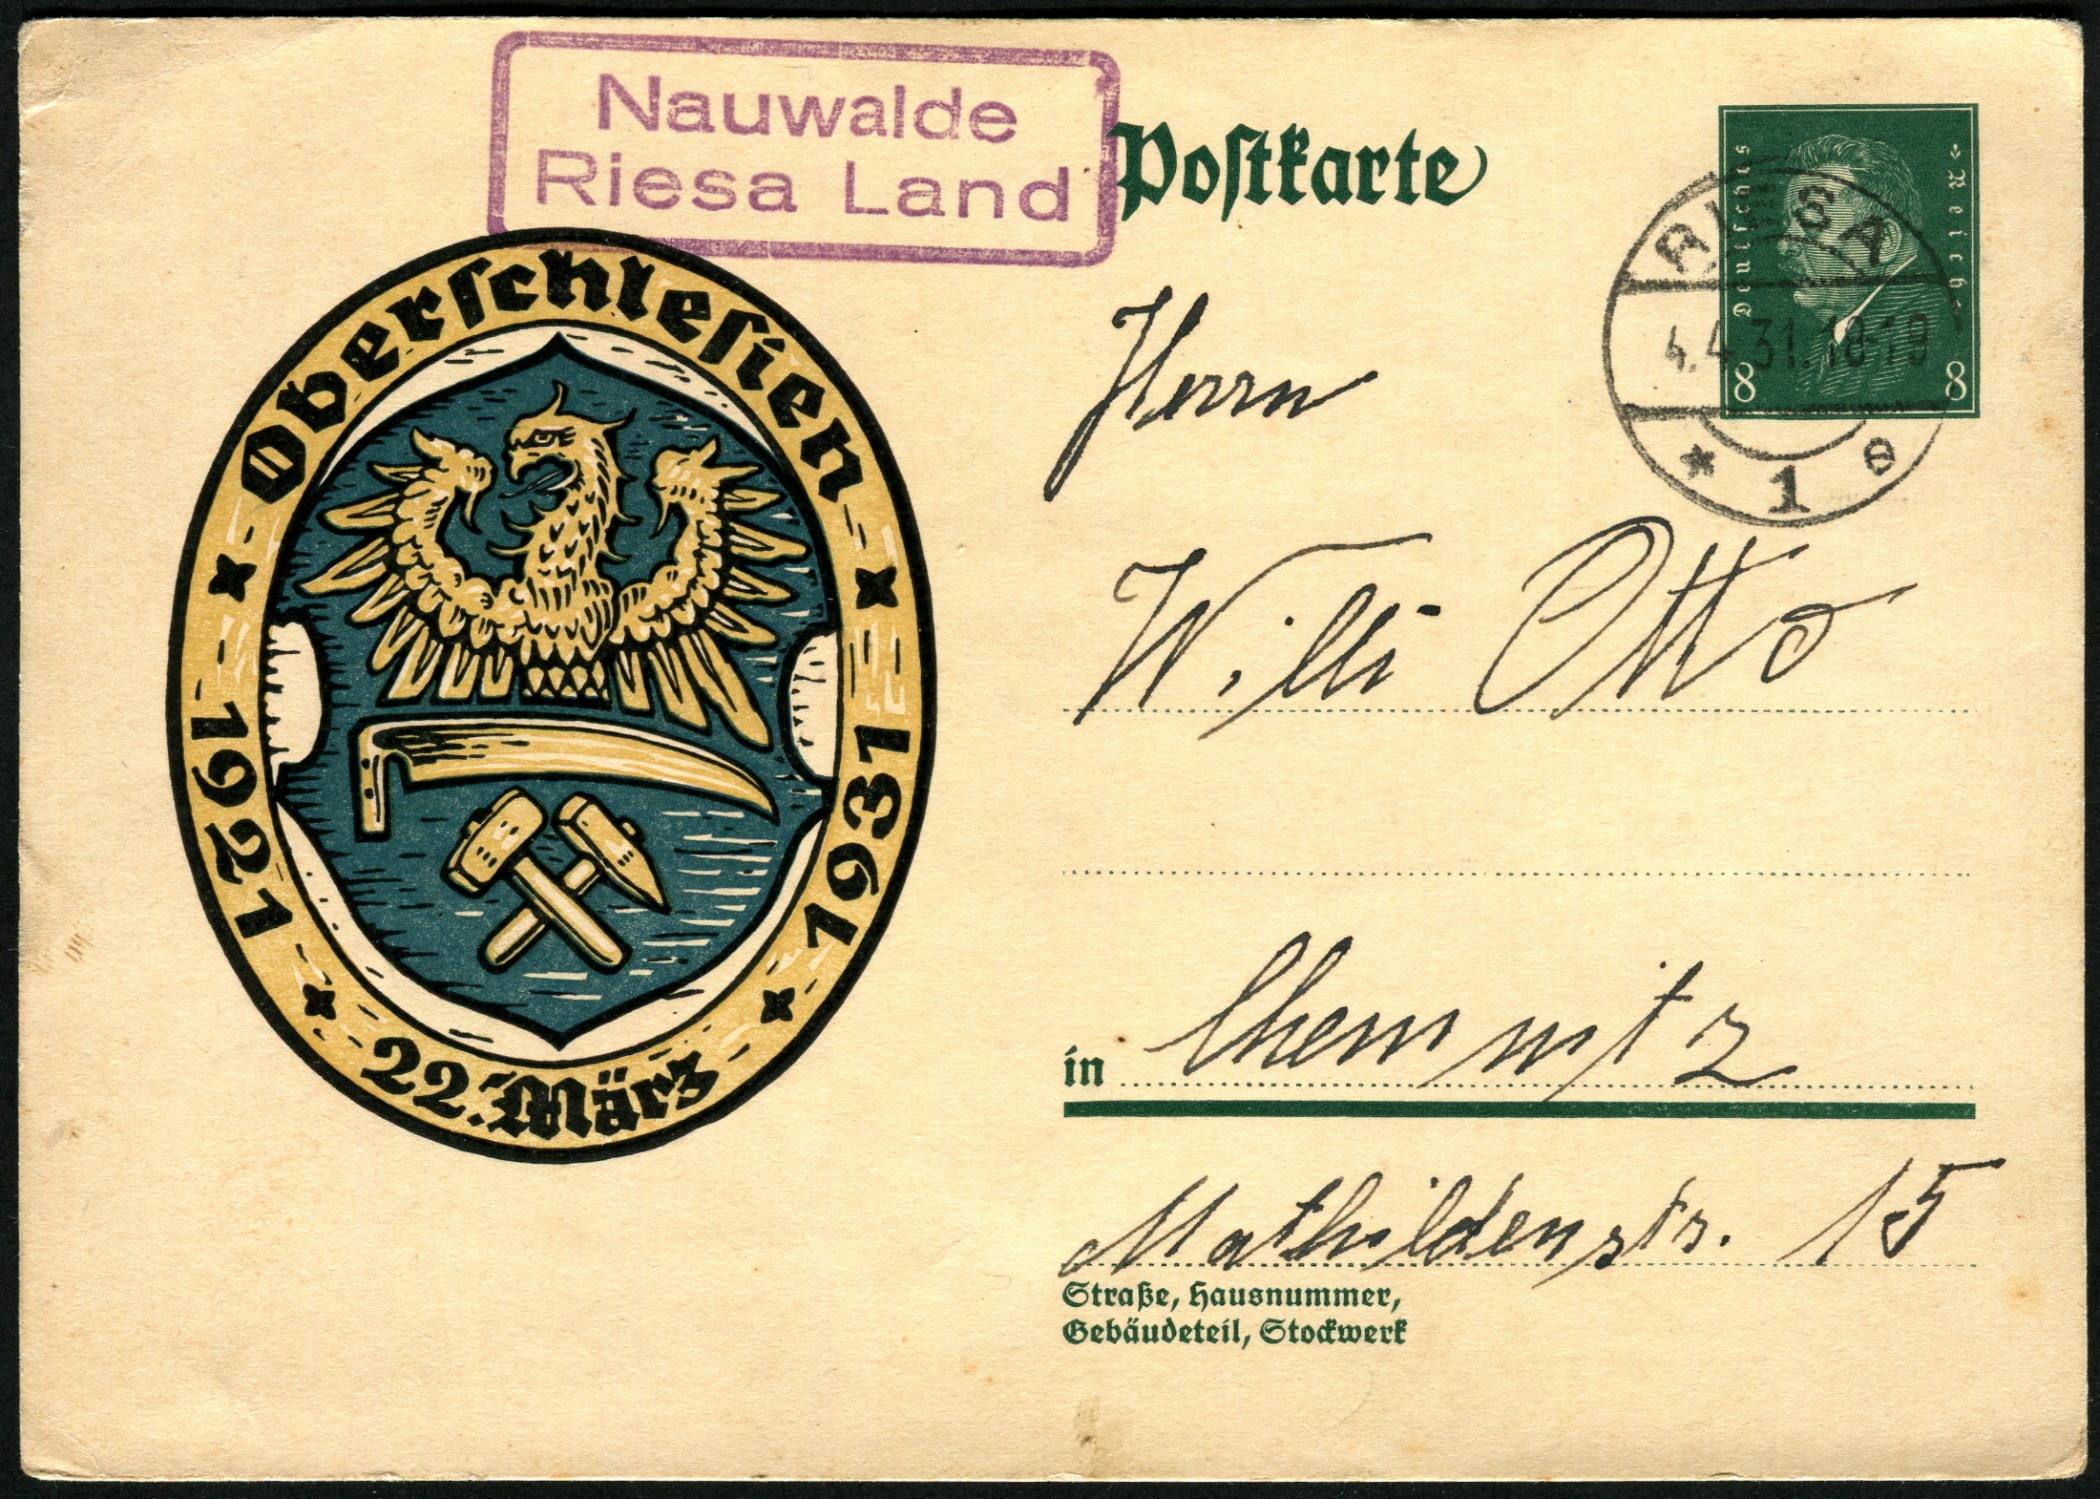 Nauwalde
Riesa Land
Postkarte
Deutsches Reich
8 8
RIESA
4.4.31.18-19
* 1 e
Oberschlesien
1921
1931
22. März
Herrn
Willi Otto
in Chemnitz
Mathildenstr. 15
Straße, Hausnummer,
Gebäudeteil, Stockwerk